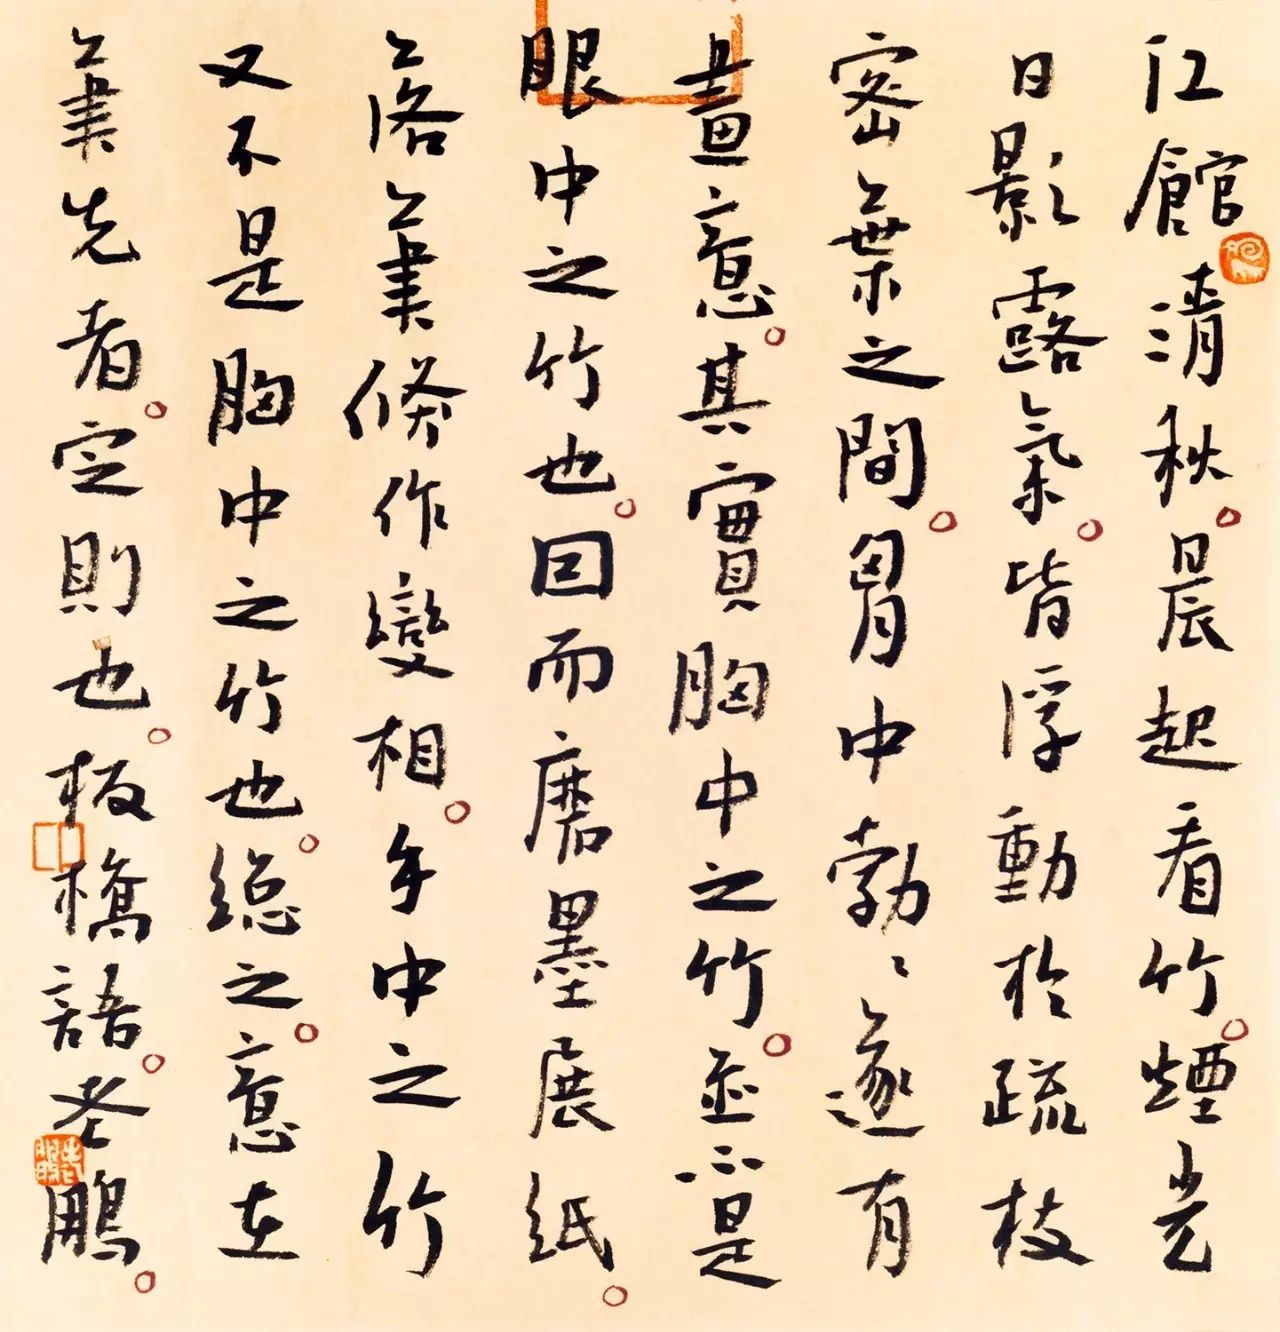 江館清秋。晨起看竹。煙光
日影露氣。皆浮動於疏枝
密葉之間。胷中勃〻遂有
畫意。其實胸中之竹。並不是
眼中之竹也。因而磨墨展紙。
落筆倏作變相。手中之竹
又不是胸中之竹也。總之。意在
筆先者。定則也。板橋語。老鵬。